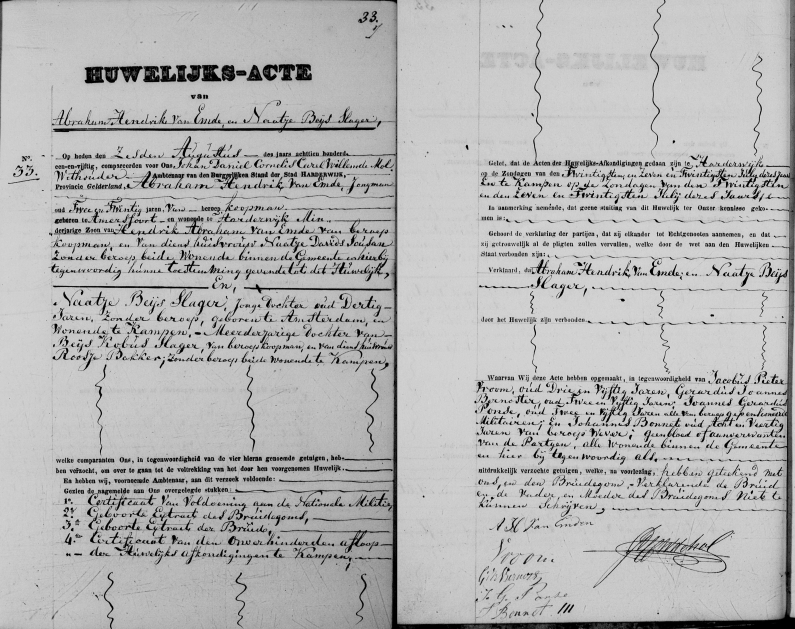 33.
HUWELIJKS-ACTE
van
Abraham Hendrik van Emde, en Naatje Beijs Slager,
No. 33.
Op heden den Zesden Augustus des jaars achttien honderd
een-en-vijftig, compareerden voor Ons, Johan Daniel Cornelis Carel Willem de Mol
Wethouder Ambtenaar van den Burgerlijken Stand der Stad HARDERWIJK,
Provincie Gelderland, Abraham Hendrik van Emde, Jongman
oud Twee en Twintig jaren, van beroep koopman
geboren te Amersfoort en wonende te Harderwijk Min
derjarige Zoon van Hendrik Abraham van Emde van beroep
koopman, en van diens huisvrouw Naatje Davids
Zonder beroep beide Wonende binnen de Gemeente en hierbij
tegenwoordig hunne toestemming gevende tot dit Huwelijk,
En,
Naatje Beijs Slager, Jonge dochter oud Dertig
Jaren, Zonder beroep, geboren te Amsterdam, en
Wonende te Kampen, Meerderjarige dochter van
Beijs Kobus Slager, van beroep koopman, en van diens huisvrouw
Roosje Bakker, zonder beroep beide wonende te Kampen,
welke comparanten Ons, in tegenwoordigheid van de vier hierna genoemde getuigen, heb-
ben verzocht, om over te gaan tot de voltrekking van het door hen voorgenomen Huwelijk.
En hebben wij, voornoemde Ambtenaar, aan dit verzoek voldoende:
Gezien de nagemelde aan Ons overgelegde stukken:
1e. Certificaat van Voldoening aan de Nationale Militie,
2e Geboorte Extract des Bruidegoms,
3e Geboorte Extract der Bruid,
4e Certificaat van den Onverhinderden afloop
der Huwelijks afkondigingen te Kampen,
Gelet, dat de Acten der Huwelijks-Afkondigingen gedaan zijn te Harderwijk
op de Zondagen van den Twintigsten, en Zeven en Twintigsten Julij dezes Jaars
En te Kampen op de Zondagen van den Twintigsten
en den Zeven en Twintigsten Julij dezes Jaars,
In aanmerking nemende, dat geene stuiting van dit Huwelijk ter Onzer kennisse geko-
men is:
Gehoord de verklaring der partijen, dat zij elkander tot Echtgenooten aannemen, en dat
zij getrouwelijk al de pligten zullen vervullen, welke door de wet aan den Huwelijken
Staat verbonden zijn:
Verklaard, dat Abraham Hendrik Van Emde, en Naatje Beijs
Slager,
door het Huwelijk zijn verbonden
Waarvan Wij deze Acte hebben opgemaakt, in tegenwoordigheid van Jacobus Pieter
Vroom, oud Drie en Vijftig Jaren, Gerardus Joannes
oud Twee en Vijftig Jaren, Joannes Gerardus
Ponse, oud Twee en Vijftig Jaren alle van beroep gepensioneerd
Militairen; En Johannes Bonnet oud Acht en Veertig
Jaren van beroep Wever; Geen bloed of aanverwanten
van de Partijen, alle wonende binnen de Gemeente
en hier bij tegenwoordig als
uitdrukkelijk verzochte getuigen, welke, na voorlezing, hebben geteekend met
ons, en den Bruidegom. Verklarende de Bruid
en de Vader en Moeder des Bruidegoms Niet te
kunnen Schrijven,
A H Van Emden
Vroom
J G Ponse
J Bonnet